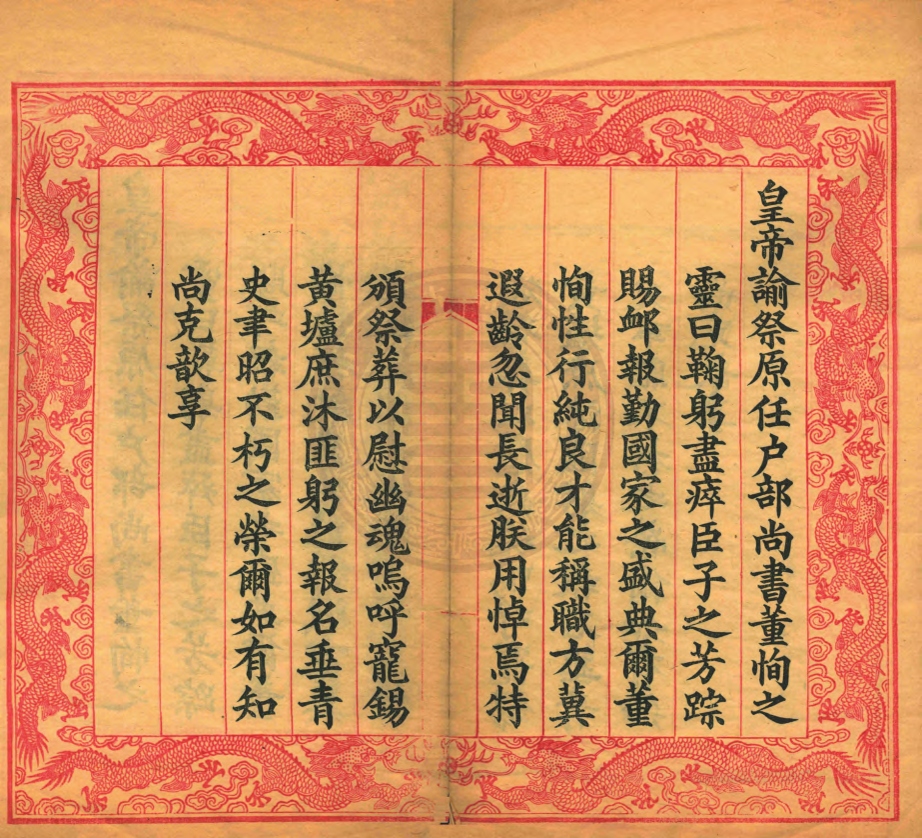 皇帝諭祭原任户部尚書董恂之
靈曰鞠躬盡瘁臣子之芳踪
賜䘏報勤國家之盛典爾董
恂性行純良才能稱職方冀
遐齡忽聞長逝朕用悼焉特
頒祭葬以慰幽魂嗚呼寵錫
黃壚庶沐匪躬之報名垂青
史聿昭不朽之榮爾如有知
尚克歆享